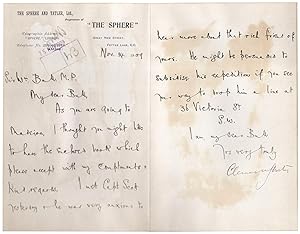 THE SPHERE AND TATLER, Ld.,
Proprietors of
"THE SPHERE"
GREAT NEW STREET,
FETTER LANE, E.C.
Telegraphic Address
"SPHERE," LONDON.
Nov. 24 1909
My dear Bull
As you are going to
I thought you might like
to have the enclosed book which
please accept with my compliments &
kind regards. I met Capt Scott
yesterday & he was very anxious to
hear more about that rich friend of
yours. He might be persuaded to
subsidise his expedition if you see
your way to drop him a line at
Victoria St
S.W.
I am my dear Bull
Yrs very truly